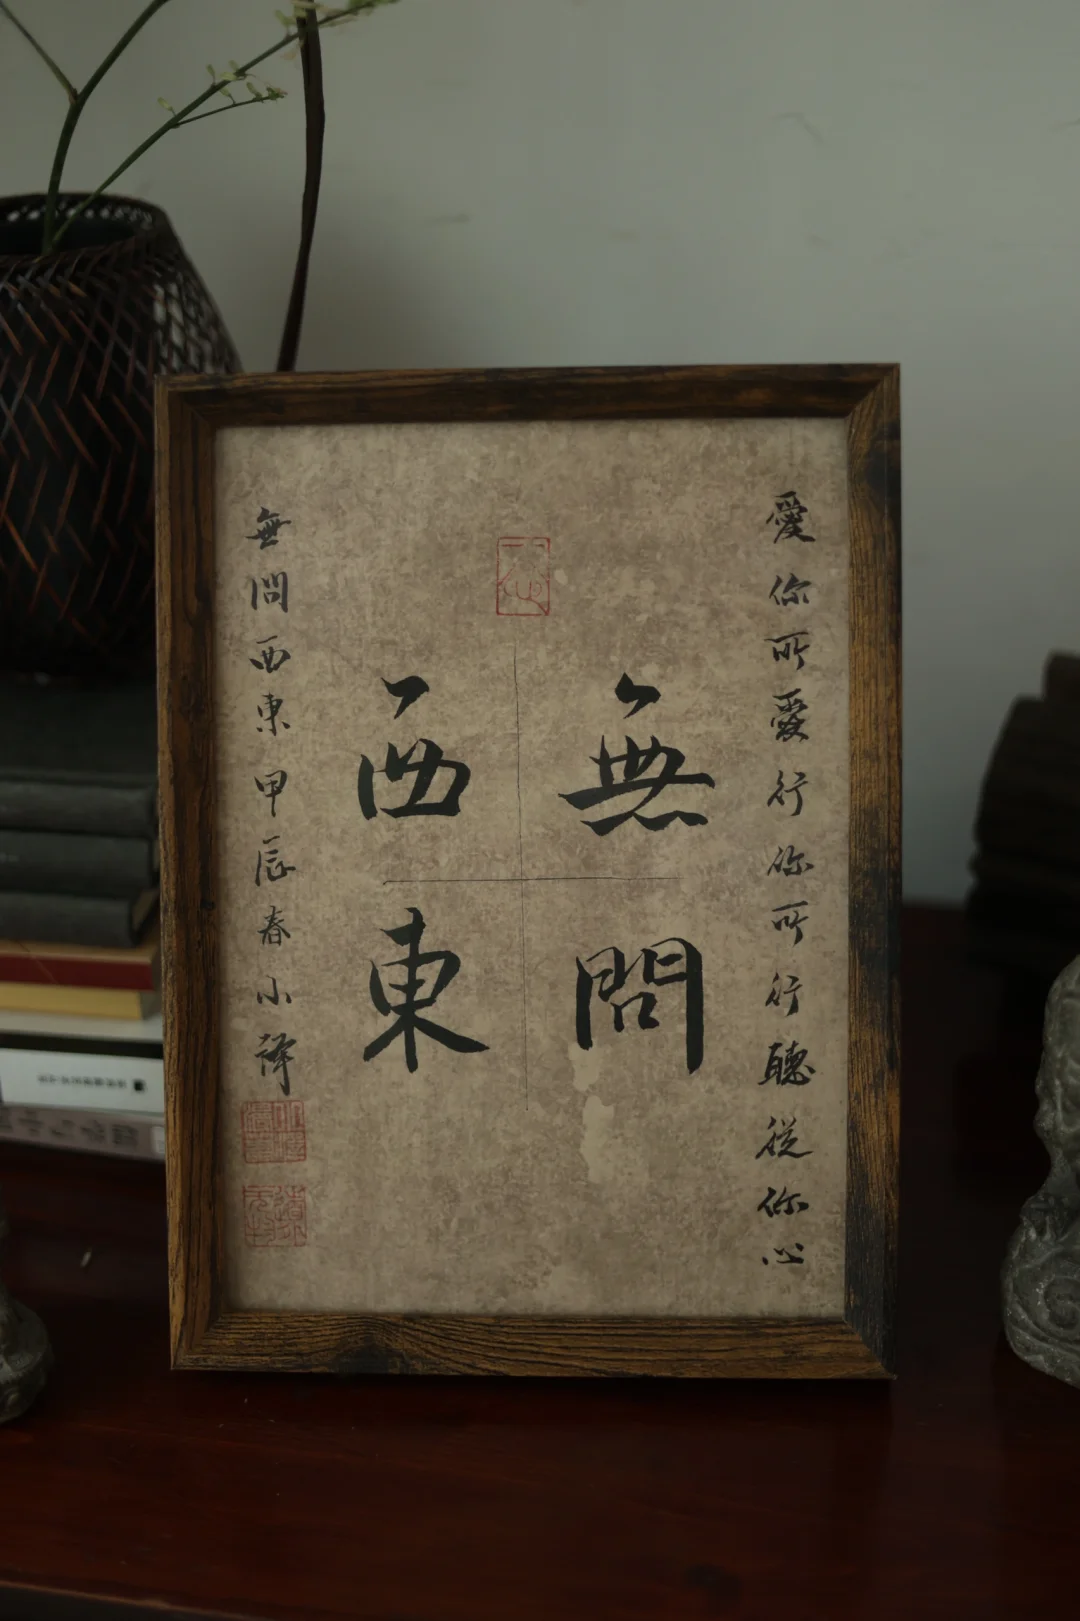 愛你所愛行你所行聽從你心
無問
西東
無問西東甲辰春小譯